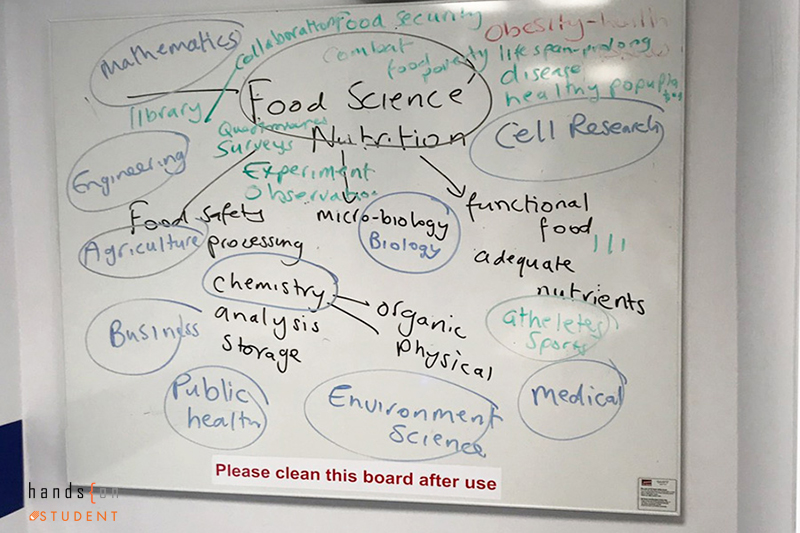 Mathematics
collaboration
Food security
Obesity-health
Combat
food poverty
life span-prolong
disease
healthy
library
Food Science
Nutrition
Questionnaires
Surveys
Cell Research
Engineering
Experiment
Observation
Food safety
processing
Agriculture
micro-biology
Biology
functional
food
adequate
nutrients
chemistry
analysis
storage
organic
physical
atheletes
sports
Business
Public
health
Environment
Science
medical
Please clean this board after use
hands on
STUDENT